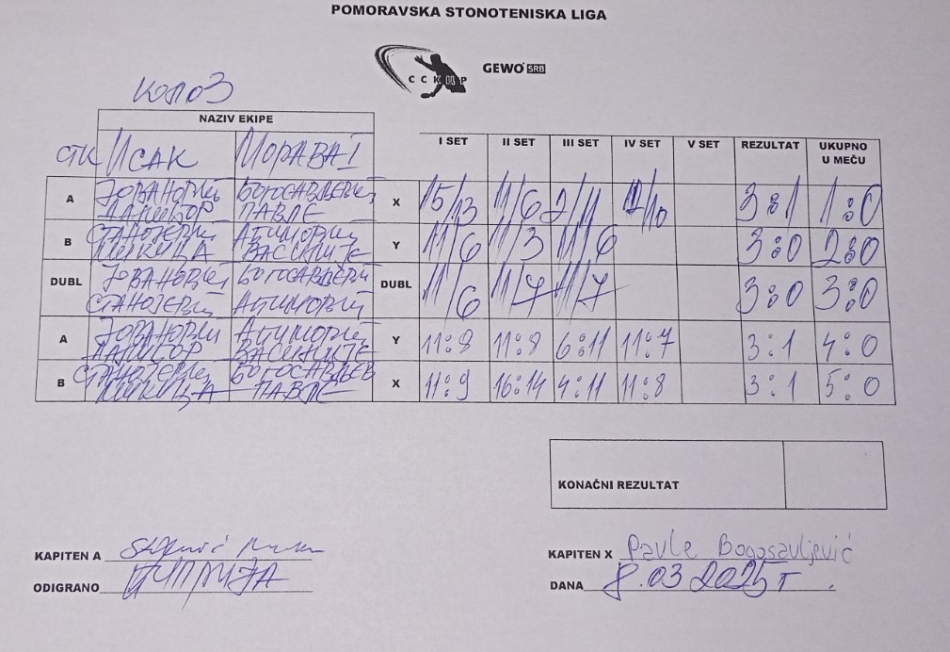 POMORAVSKA STONOTENISKA LIGA
ССКUP GEWO SRB
КОЛО 3
NAZIV EKIPE
I SET II SET III SET IV SET V SET REZULTAT UKUPNO U MEČU
СТК ИСАК МОРАВА I
A ЈОВАНОВИЋ ДАЛИБОР БОГОСАВЉЕВИЋ ПАВЛЕ X 15/13 11/6 2/11 12/10 3:1 1:0
B СТАНОЈЕВИЋ АЋИМОВИЋ Y 11/6 11/3 11/6 3:0 2:0
DUBL ЈОВАНОВИЋ БОГОСАВЉЕВИЋ DUBL 11/6 11/7 11/7 3:0 3:0
СТАНОЈЕВИЋ АЋИМОВИЋ
A ЈОВАНОВИЋ ДАЛИБОР АЋИМОВИЋ Y 11:9 11:9 6:11 11:7 3:1 4:0
B СТАНОЈЕВИЋ БОГОСАВЉЕВ ПАВЛЕ X 11:9 16:14 4:11 11:8 3:1 5:0
KONAČNI REZULTAT
KAPITEN A
KAPITEN X Pavle Bogosavljević
ODIGRANO ЋУПРИЈА
DANA 8.03 2025 г.